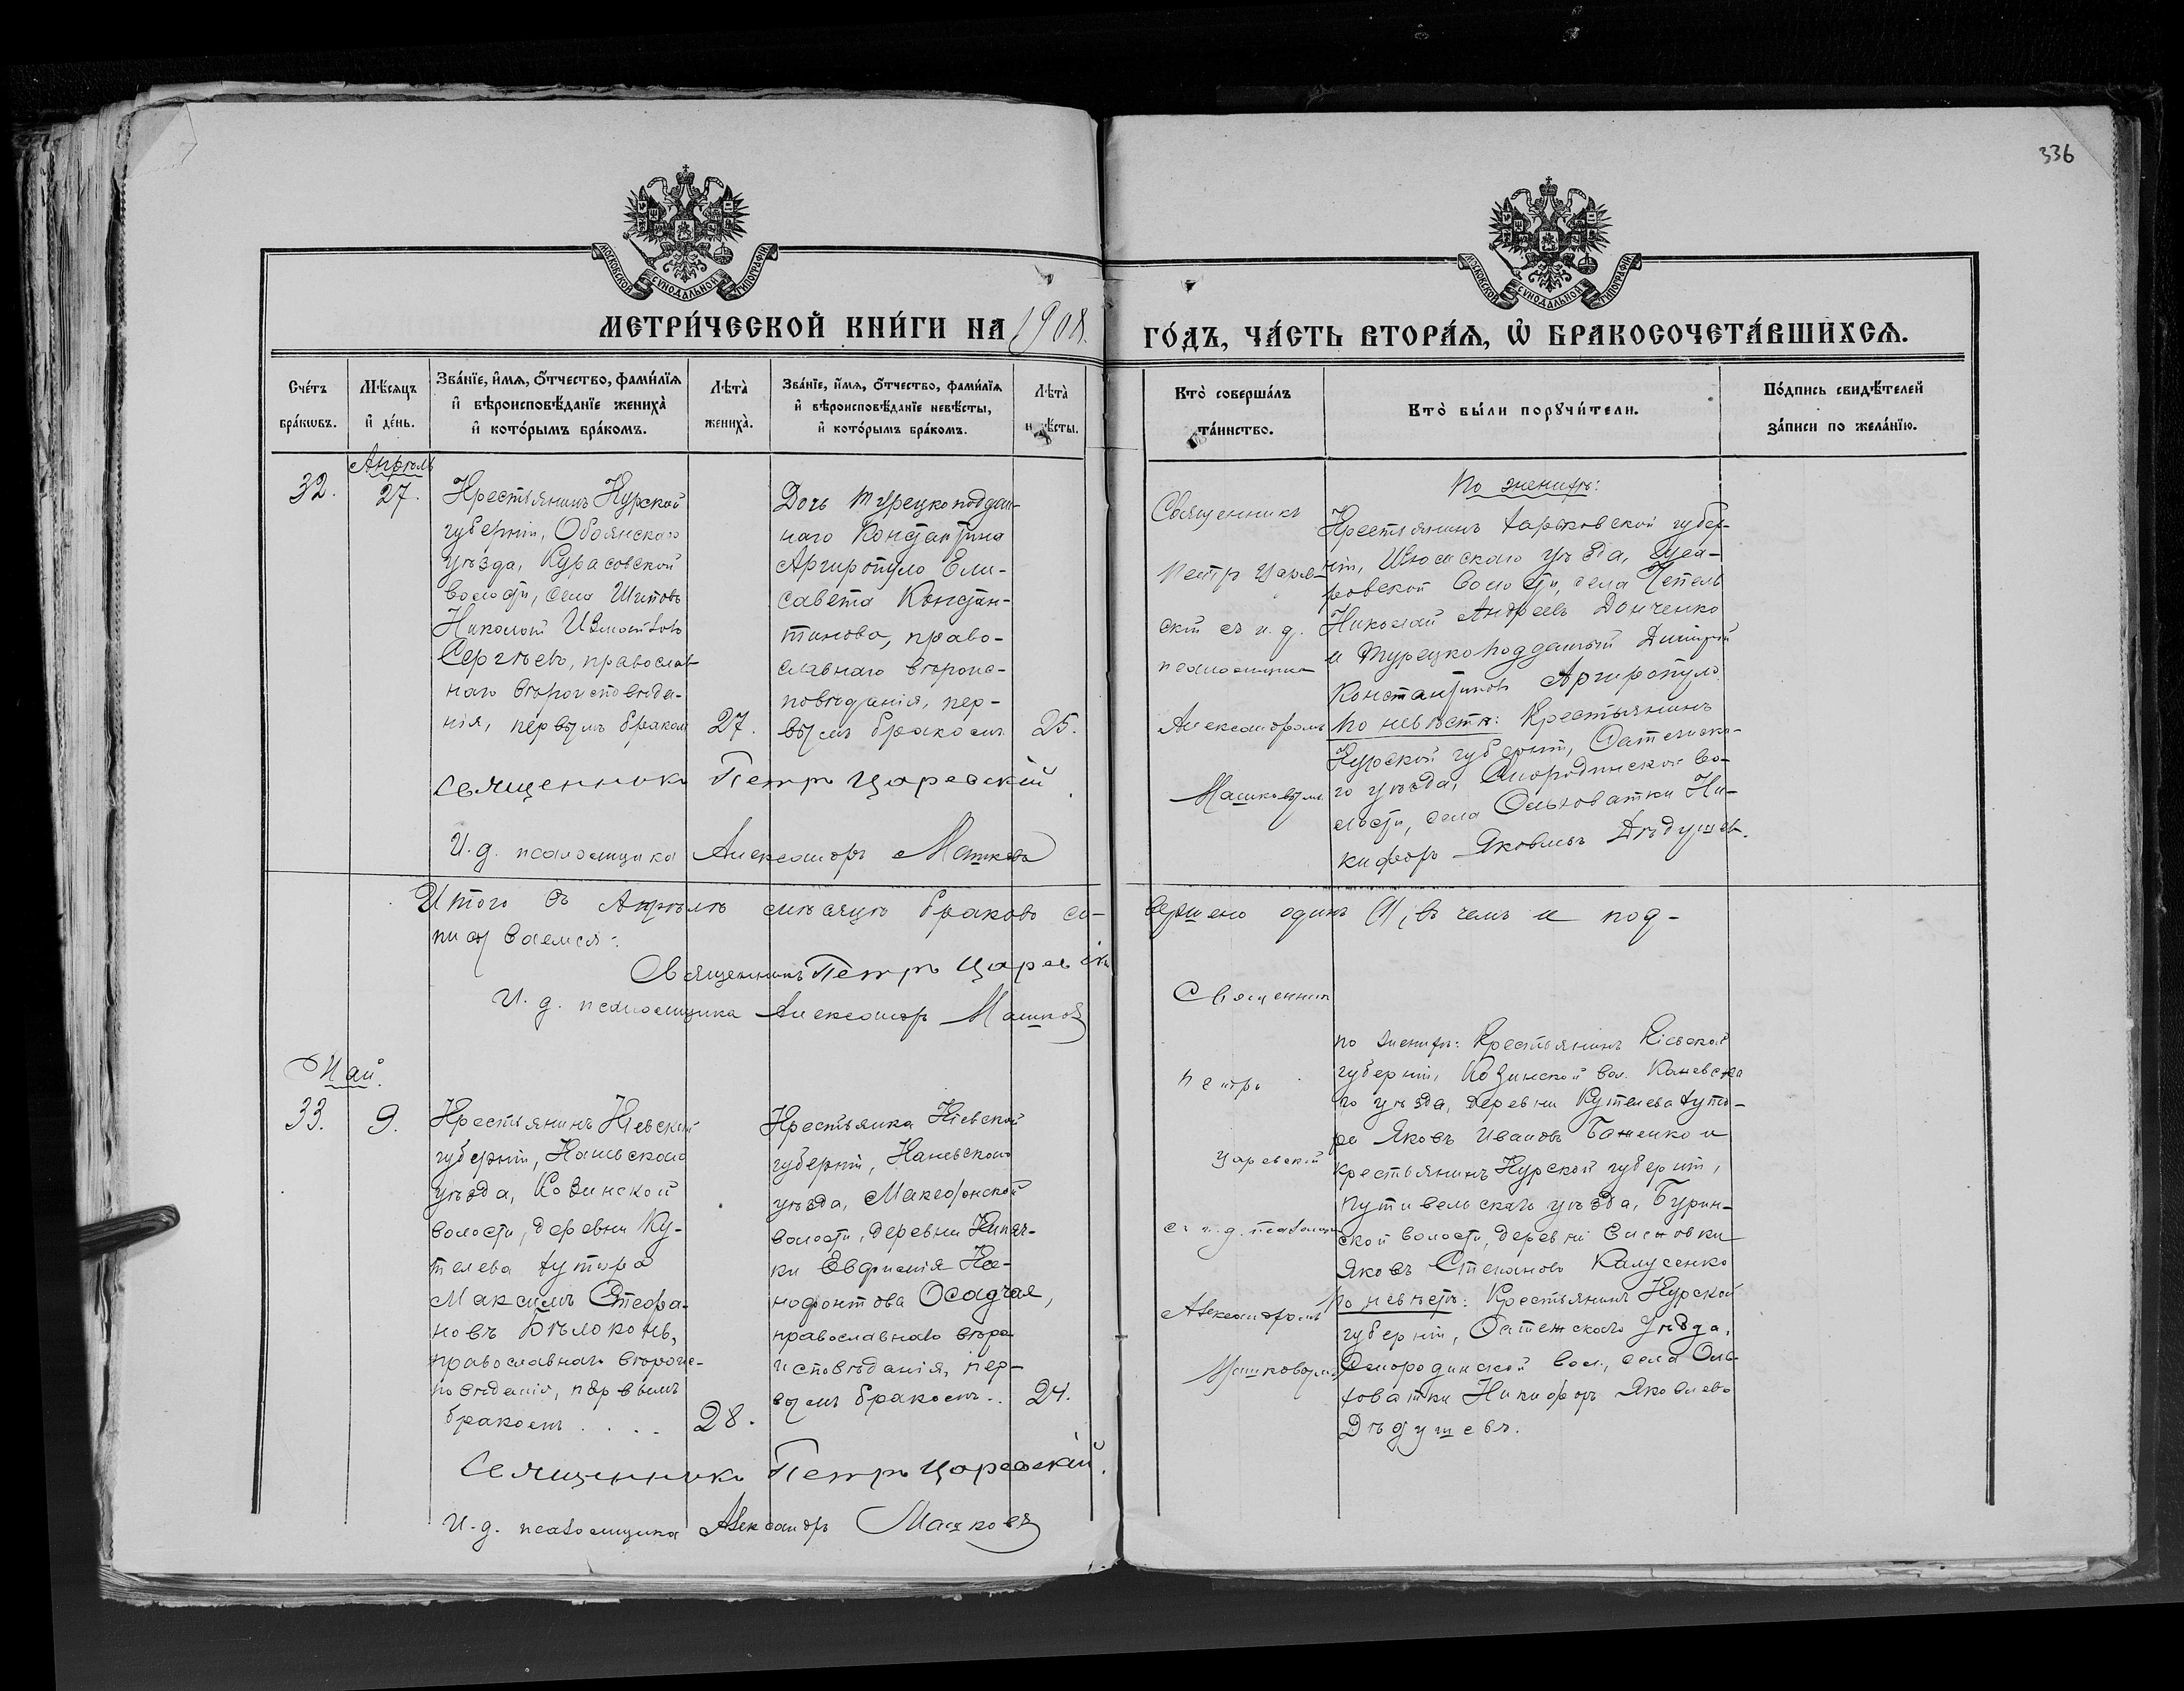 336
МОСКОВСКОЙ СѴНОДАЛЬНОЙ ТИПОГРАФІИ
МОСКОВСКОЙ СѴНОДАЛЬНОЙ ТИПОГРАФІИ
МЕТРИ́ЧЕСКОЙ КНИ́ГИ НА 1908.
ГО́ДЪ, ЧА́СТЬ ВТОРА́Ѧ, Ѽ БРАКОСОЧЕТА́ВШИХСѦ.
Сче́тъ
бра́кωвъ.
Мѣ́сяцъ
и҆ де́нь.
Зва́нїе, и҆́мѧ, ѻ҆́тчество, фами́лїѧ
и҆ вѣроисповѣ́данїе жениха̀
и҆ кото́рымъ бра́комъ.
Лѣта̀
жениха̀.
Зва́нїе, и҆́мѧ, ѻ҆́тчество, фами́лїѧ
и҆ вѣроисповѣ́данїе невѣ́сты,
и҆ кото́рымъ бра́комъ.
Лѣта̀
невѣ́сты.
Кто̀ соверша́лъ
та́инство.
Кто̀ бы́ли порꙋчи́тели.
По́дпись свидѣ́телей
за́писи по жела́нїю.
Апрѣль
32.
27.
Крестьянинъ Курской
губерніи, Обоянскаго
уѣзда, Курасовской
волости, села Шиповъ
Николай Измаиловъ
Сергѣевъ, православ-
наго вѣроисповѣда-
нія, первымъ бракомъ
27.
Дочь турецкоподдан-
наго Константина
Аргиропуло Ели-
савета Констан-
тинова, право-
славнаго вѣроис-
повѣданія, пер-
вымъ бракомъ
25.
Священникъ Петръ Царевскій.
И. д. псаломщика Александръ Машковъ
Священникъ
Петръ Царев-
скій съ и. д.
псаломщика
Александромъ
Машковымъ
По женихѣ:
Крестьянинъ Харьковской губер-
ніи, Изюмскаго уѣзда,
волости, села Чепель
Николай Андреевъ Донченко
и Турецкоподданный Димитрій
Константиновъ Аргиропуло.
По невѣстѣ: Крестьянинъ
Курской губерніи, Фатежска-
го уѣзда, Смородинской во-
лости, села Ольховатки Ни-
кифоръ Яковлевъ Дѣдушевъ.
Итого въ Апрѣлѣ мѣсяцѣ браковъ со-
вершено одинъ (1), въ чемъ и под-
писываемся:
Священникъ Петръ Царевскій
И. д. псаломщика Александръ Машковъ
Май.
33.
9.
Крестьянинъ Кіевской
губерніи, Каневскаго
уѣзда, Козинской
волости, деревни Ку-
телева хутора
Максимъ Стефа-
новъ Бѣлоконь,
православнаго вѣроис-
повѣданія, первымъ
бракомъ . . . .
28.
Крестьянка Кіевской
губерніи, Каневскаго
уѣзда, Македонской
волости, деревни Кипяч-
ки Евфимія Ксе-
нофонтова Осадчая,
православнаго вѣро-
исповѣданія, пер-
вымъ бракомъ..
24.
Священникъ Петръ Царевскій.
И. д. псаломщика Александръ Машковъ
Священникъ
Петръ
Царевскій
съ и. д. псаломщ.
Александромъ
Машковымъ
По женихѣ: Крестьянинъ Кіевской
губерніи, Козинской вол. Каневска-
го уѣзда, деревни Кутелева хуто-
ра Яковъ Ивановъ Баженко и
крестьянинъ Курской губерніи,
Путивльскаго уѣзда, Бурин-
ской волости, деревни
Яковъ Степановъ Калусенко
По невѣстѣ: Крестьянинъ Курской
губерніи, Фатежскаго уѣзда,
Смородинской вол., села Оль-
ховатки Никифоръ Яковлевъ
Дѣдушевъ.